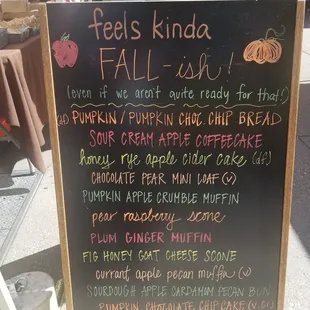 feels kinda
FALL-ish!
(even if we aren't quite ready for that!)
(d) PUMPKIN / PUMPKIN CHOC. CHIP BREAD
SOUR CREAM APPLE COFFEECAKE
honey rye apple cider cake (df)
CHOCOLATE PEAR MINI LOAF (v)
PUMPKIN APPLE CRUMBLE MUFFIN
pear raspberry scone
PLUM GINGER MUFFIN
FIG HONEY GOAT CHEESE SCONE
currant apple pecan muffin (v)
SOURDOUGH APPLE CARDAMOM PECAN BUN
PUMPKIN CHOCOLATE CHIP CAKE